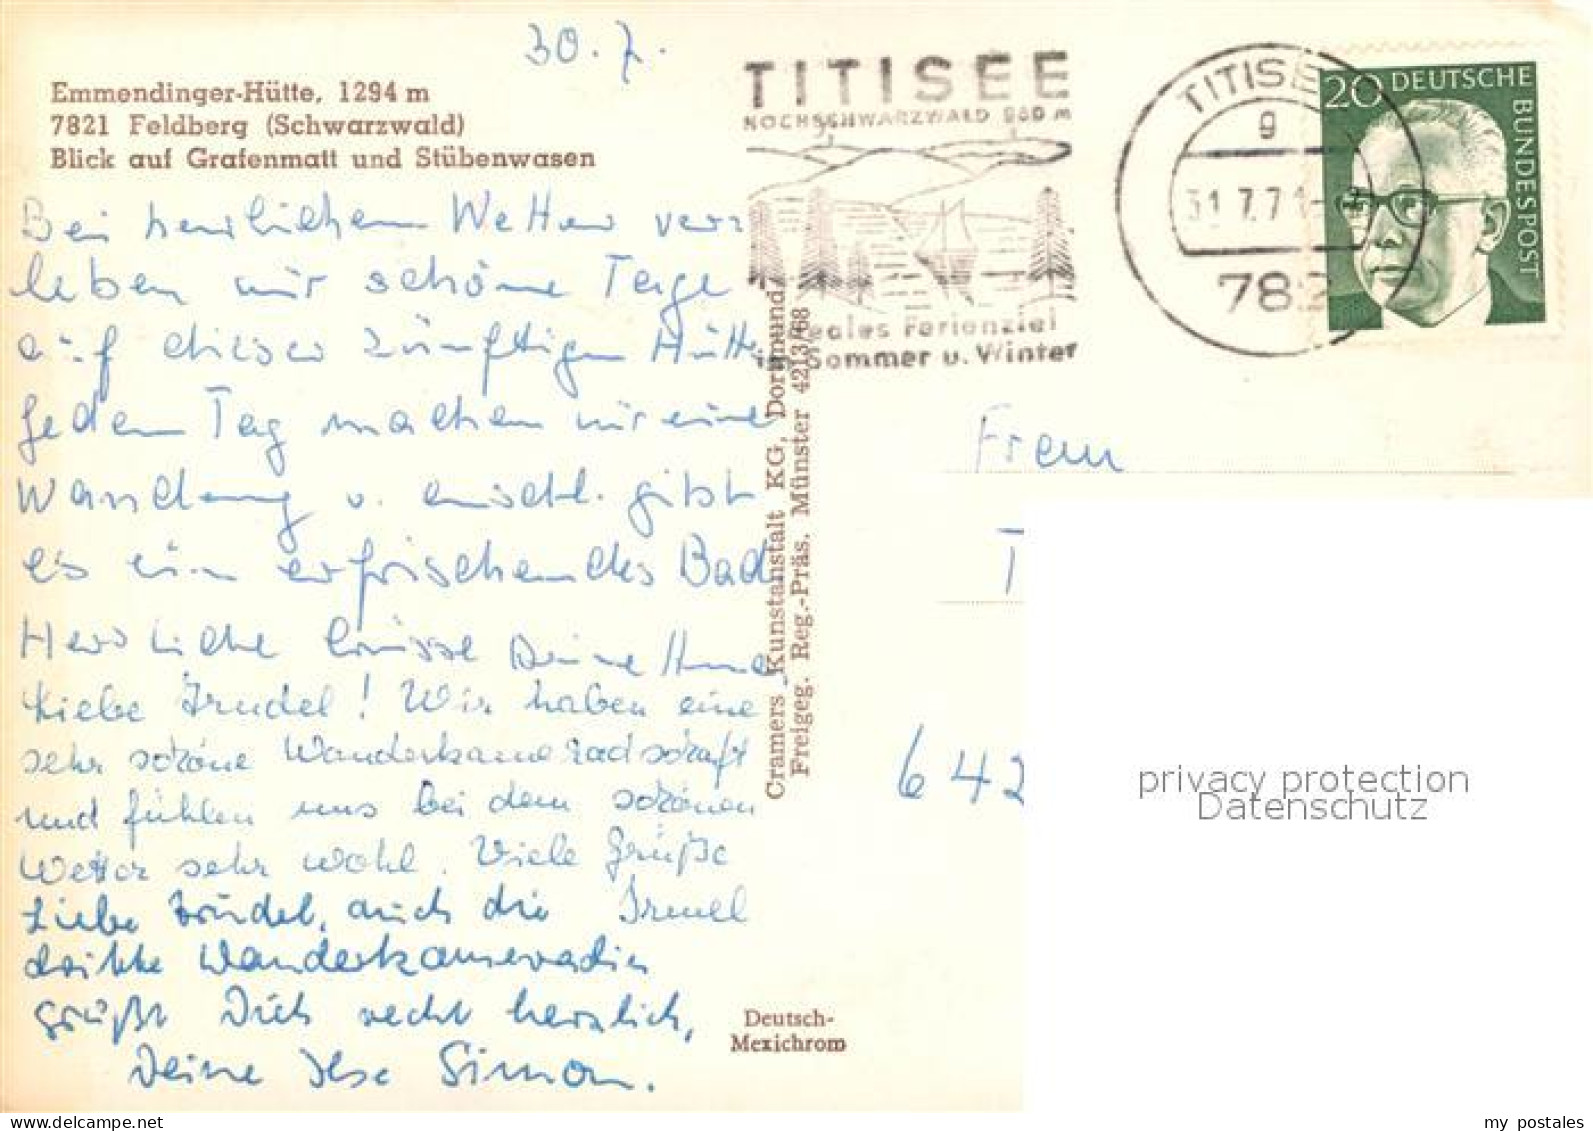 30. 7.
Emmendinger-Hütte, 1294 m
7821 Feldberg (Schwarzwald)
Blick auf Grafenmatt und Stübenwasen
Bei herrlichem Wetter ver-
leben wir schöne Tage
auf dieser zünftigen Hütte
Jeden Tag machen wir eine
Wanderung u. anschl. gibt
es ein erfrischendes Bad
Herzliche Grüsse Deine
Liebe Trudel! Wir haben eine
sehr schöne Wanderkameradschaft
und fühlen uns bei dem schönen
Wetter sehr wohl. Viele Grüße
Irmel
Liebe Trudel, auch die
dritte Wanderkameradin
grüßt Dich recht herzlich,
Deine Ilse Simon.
Cramers Kunstanstalt KG, Dortmund
Freigeg. Reg.-Präs. Münster 4213/68
Deutsch-
Mexichrom
TITISEE
HOCHSCHWARZWALD 860 m
Ideales Ferienziel
im Sommer u. Winter
TITISEE
g
31.7.71
782
20 DEUTSCHE
BUNDESPOST
Frau
T
642
privacy protection
Datenschutz
my postales